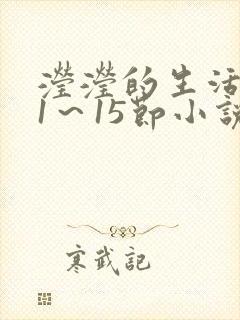 瀅瀅的生活
1～15節小說
寒武記